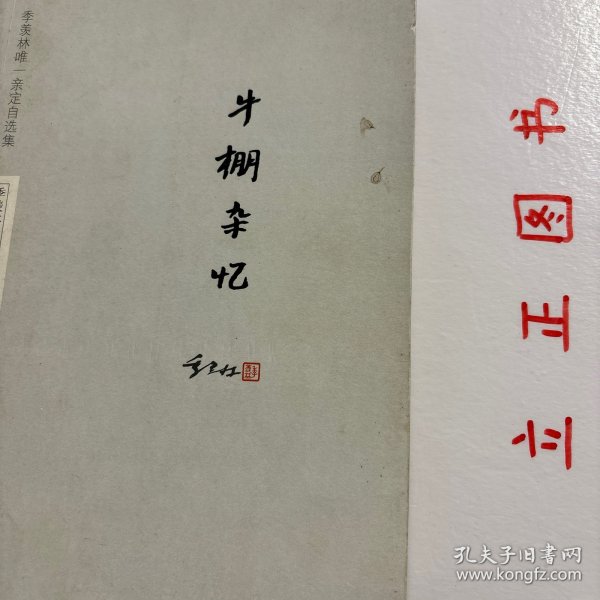 季羡林唯一亲定自选集
牛棚杂忆
季羡林
立正图书
孔夫子旧书网
www.kongfz.com